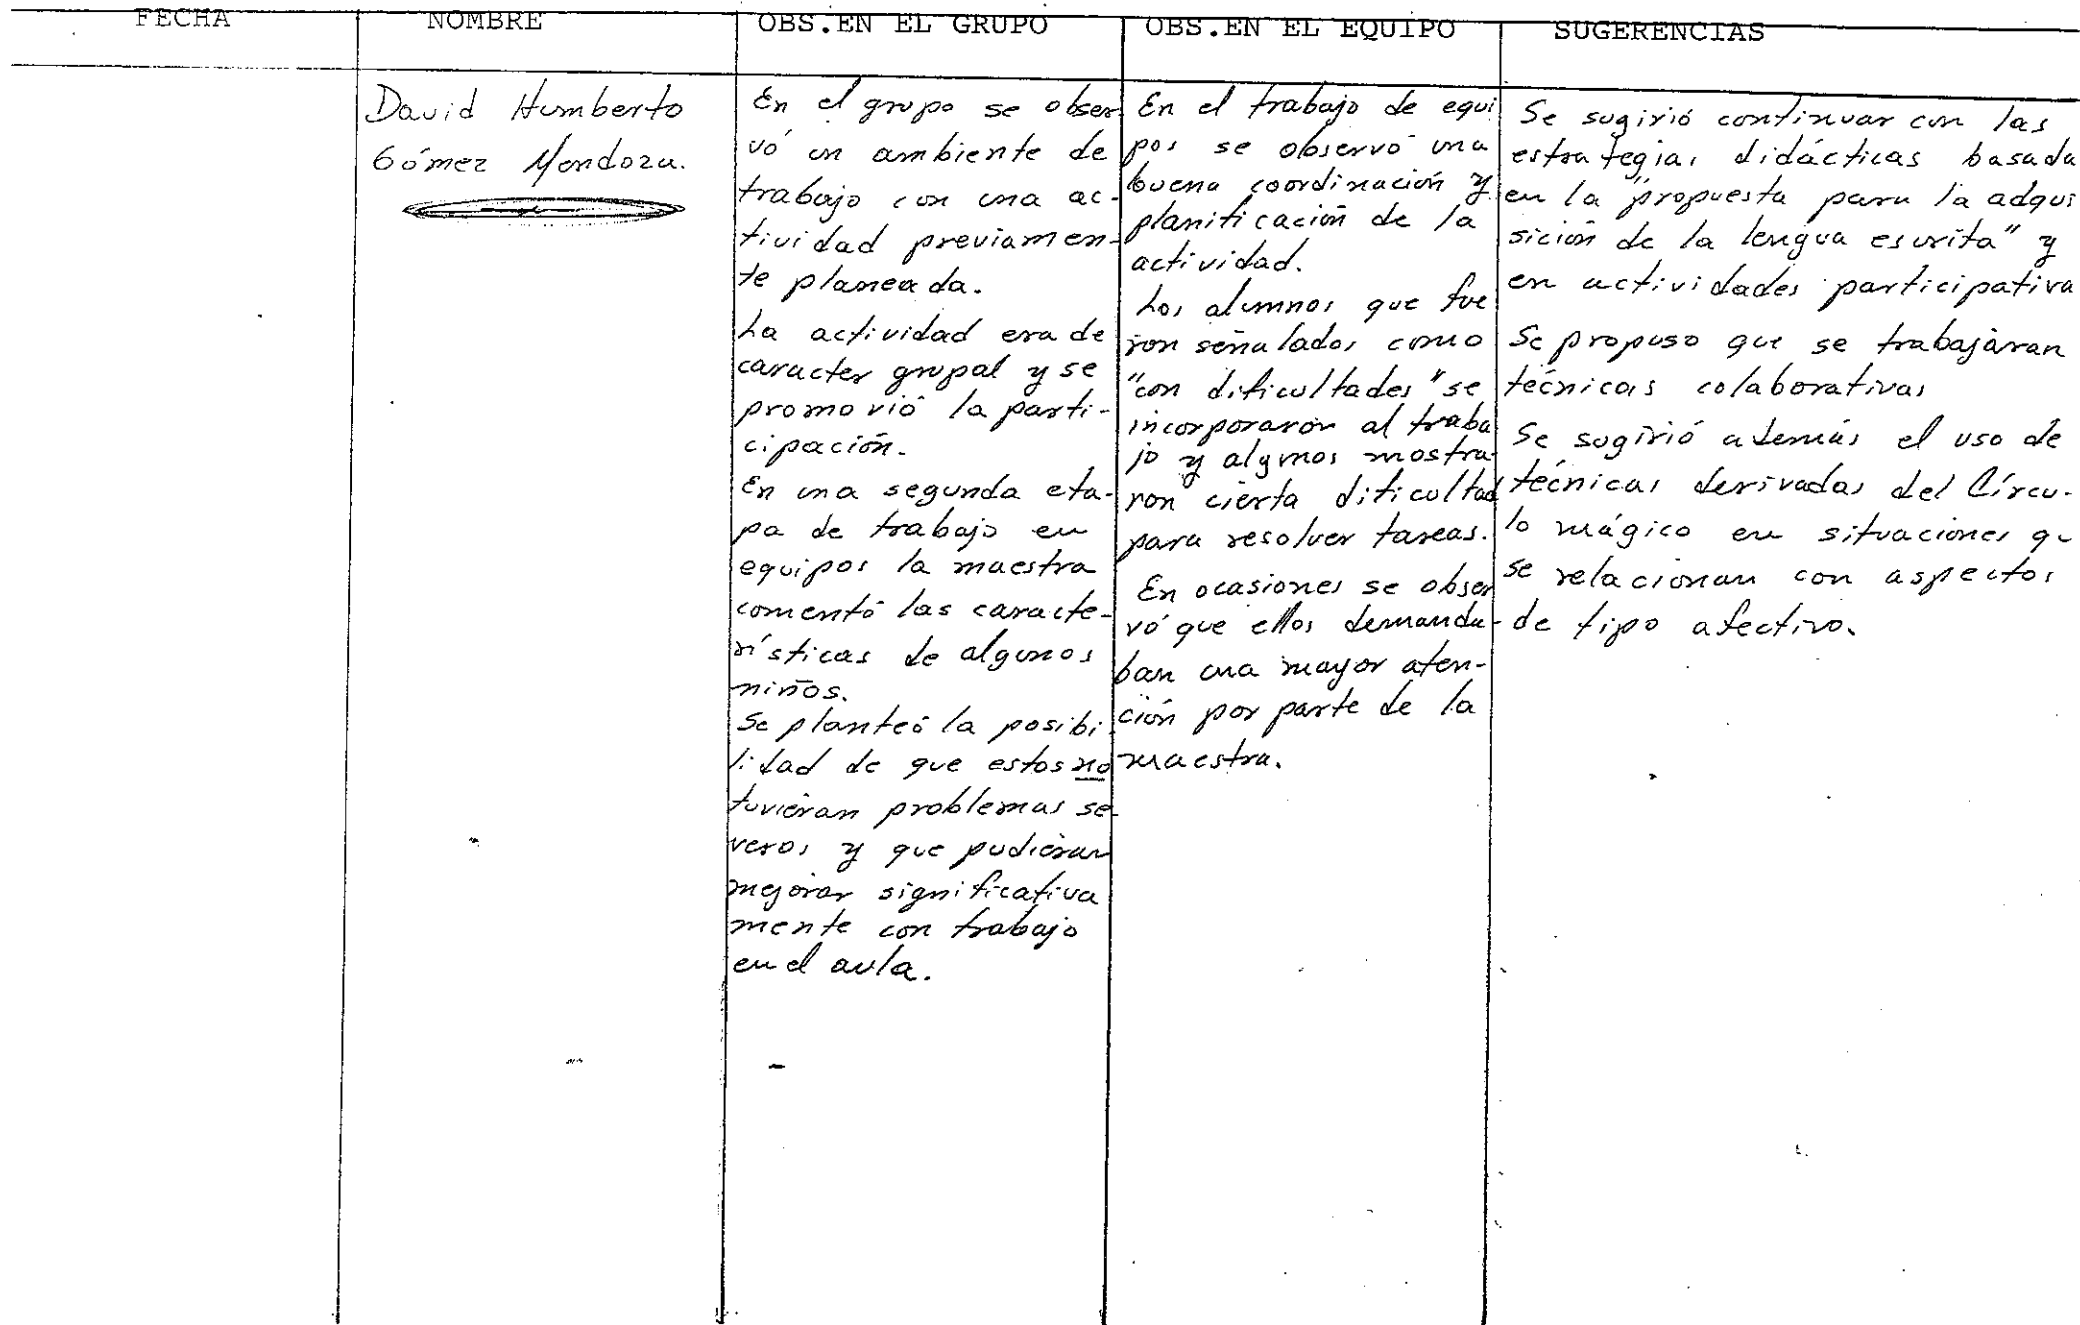 FECHA NOMBRE OBS.EN EL GRUPO OBS.EN EL EQUIPO SUGERENCIAS
David Humberto
Gómez Mendoza.
En el grupo se obser
vó un ambiente de
trabajo con una ac-
tividad previamen-
te planeada.
La actividad era de
caracter grupal y se
promovió la parti-
cipación.
En una segunda eta-
pa de trabajo en
equipos la maestra
comentó las caracte-
rísticas de algunos
niños.
Se planteó la posibi
lidad de que estos no
tuvieran problemas se
veros y que pudieran
mejorar significativa
mente con trabajo
en el aula.
En el trabajo de equi
pos se observó una
buena coordinación y
planificación de la
actividad.
Los alumnos que fue
ron señalados como
"con dificultades" se
incorporaron al traba
jo y algunos mostra
ron cierta dificultad
para resolver tareas.
En ocasiones se obser
vó que ellos demanda-
ban una mayor aten-
ción por parte de la
maestra.
Se sugirió continuar con las
estrategias didácticas basada
en la "propuesta para la adqui
sición de la lengua escrita" y
en actividades participativa
Se propuso que se trabajáran
técnicas colaborativas
Se sugirió además el uso de
técnicas derivadas del Círcu-
lo mágico en situaciones qu
se relacionan con aspectos
de tipo afectivo.